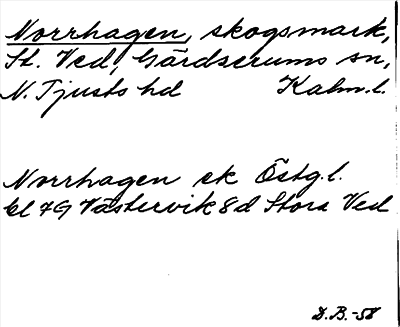 Norrhagen, skogsmark,
St. Ved, Gärdserums sn,
N. Tjusts hd Kalm. l.
Norrhagen ek Östg. l.
bl 7G Västervik 8d Stora Ved
D.B. -58